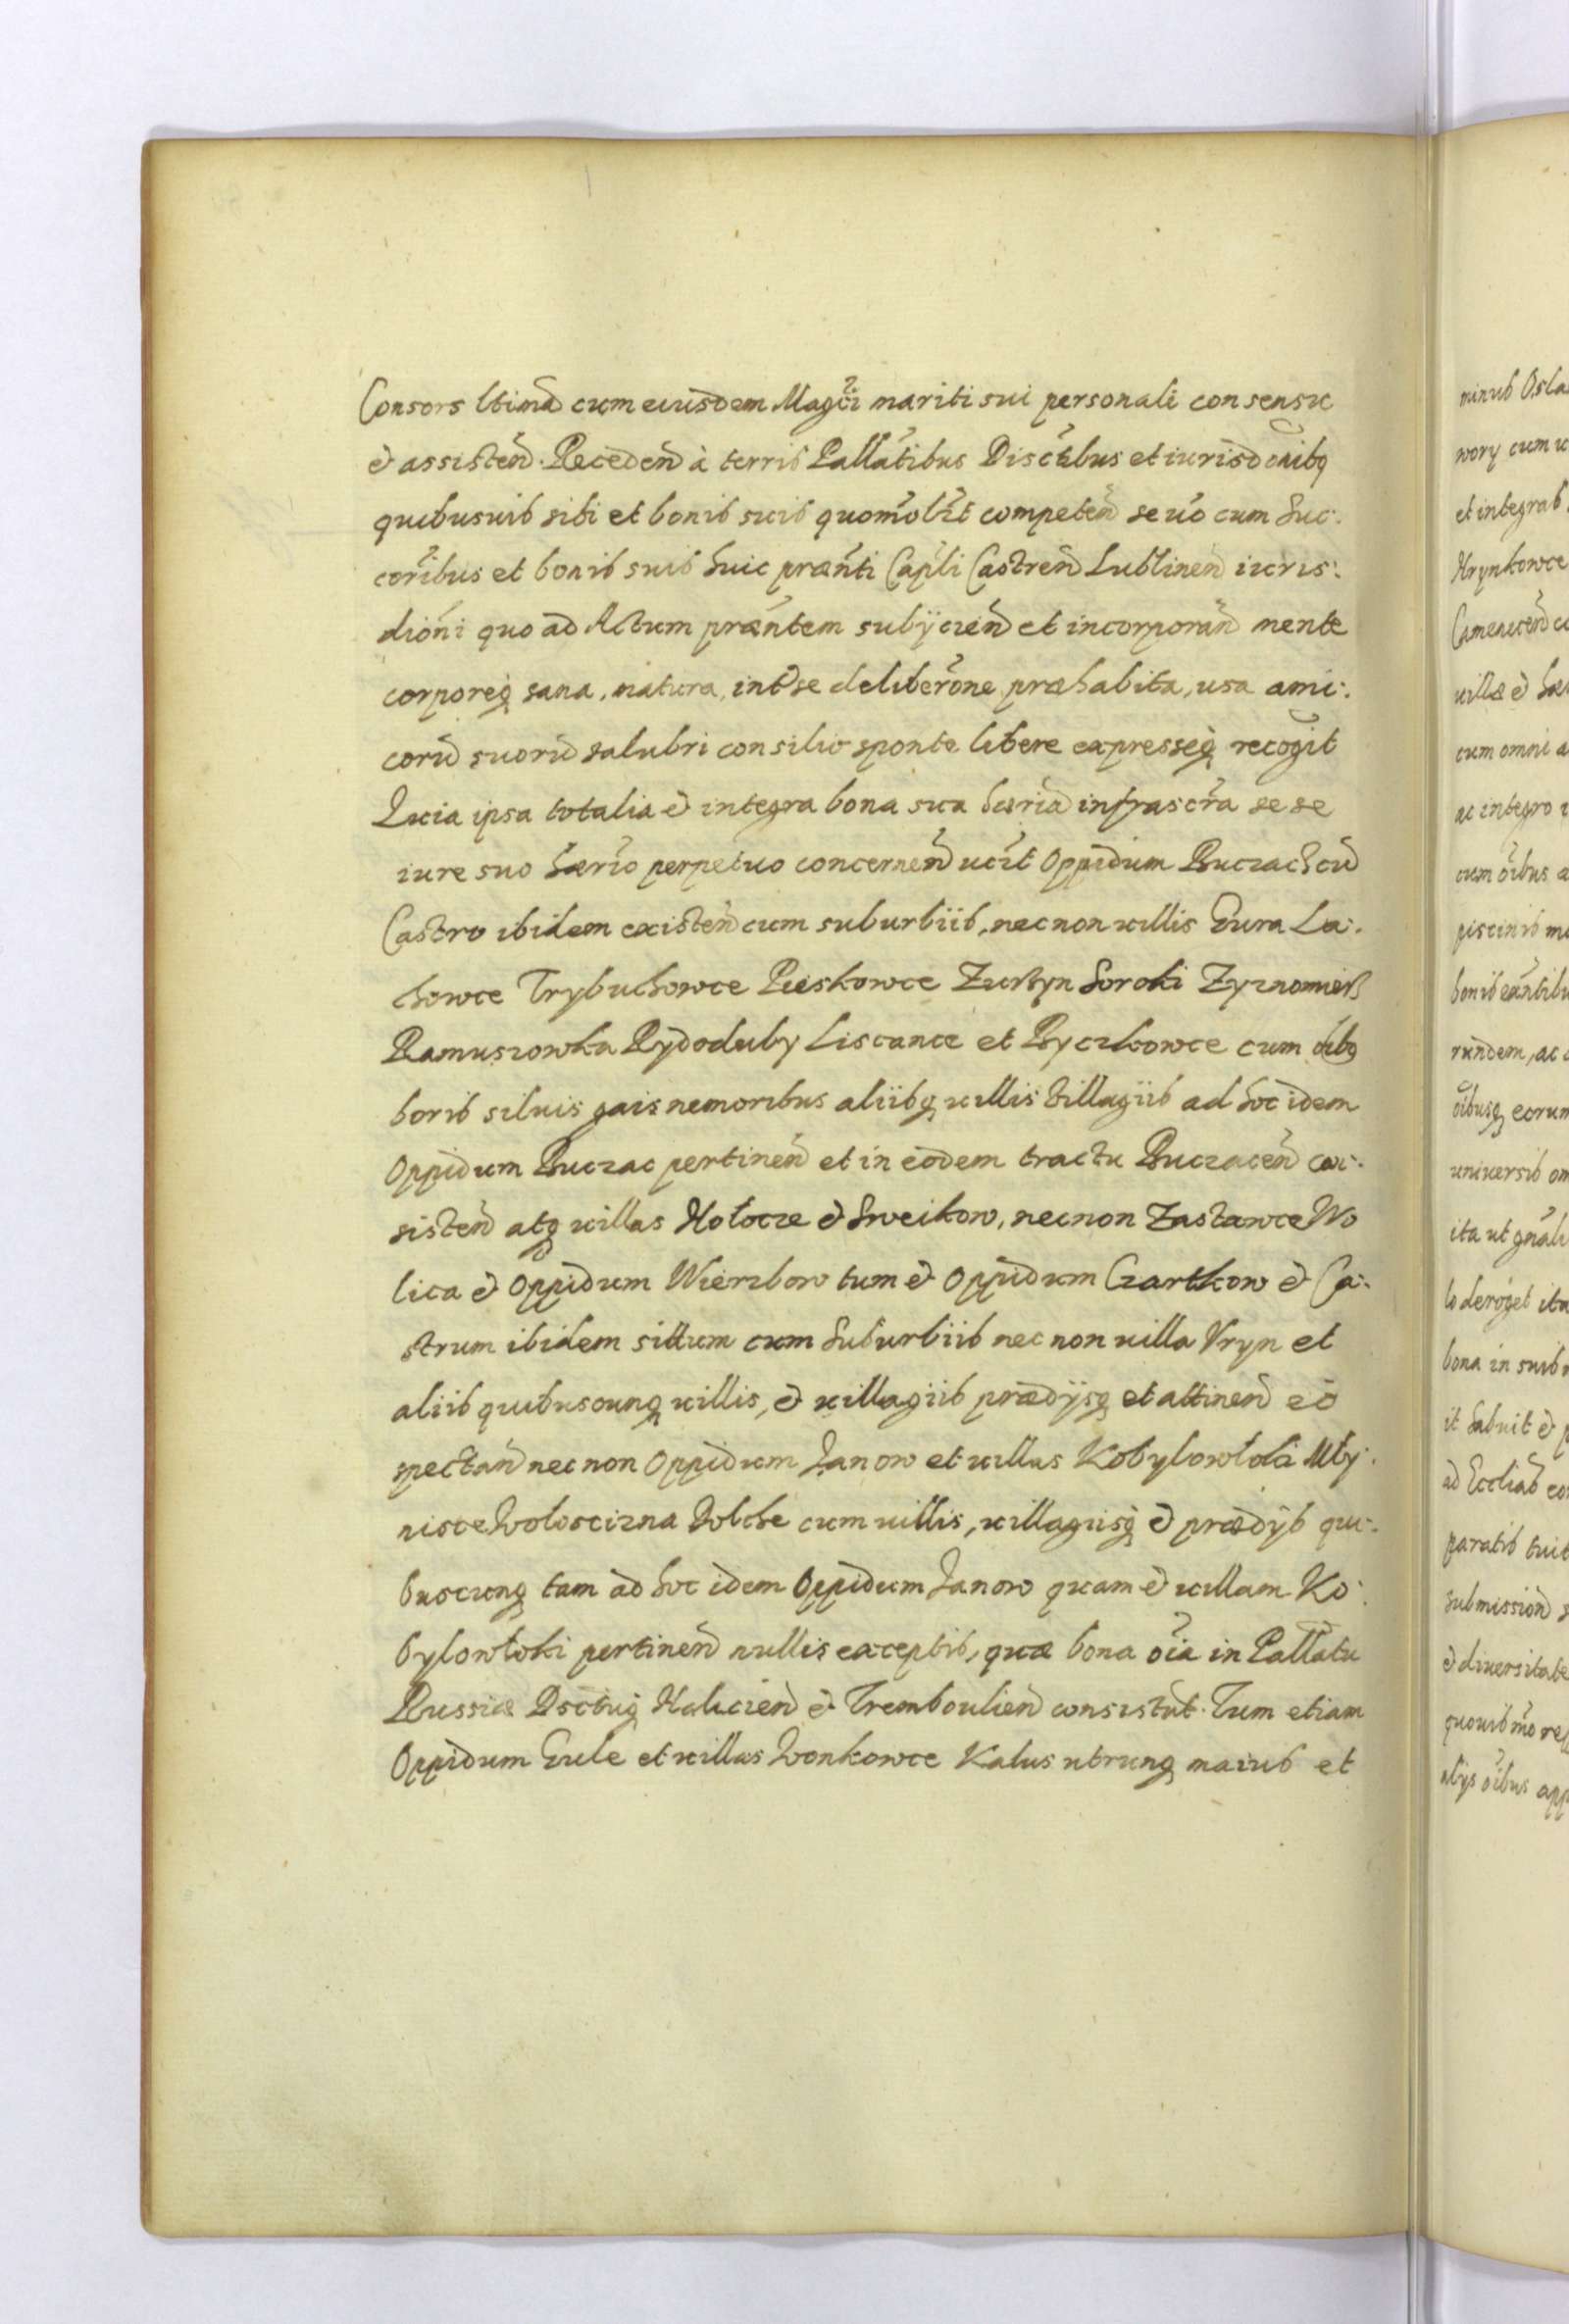 Consors ltima cum eiusdem Magci mariti sui personali consensu
et assisten. Receden à terris Pallatibus Disctibus et iurisdonibq
quibusuis sibi et bonis suis quomolit competen se uo cum Suc:
coribus et bonis suis huic prænti Capli Castren Lublinen iuris:
dioni quo ad Actum præntem subÿcien et incorporan mente
corporeq sana, matura, int se deliberone præhabita, usa ami:
coru suoru salubri consilio sponte libere expresseq recogit
Quia ipsa totalia et integra bona sua hæria infrascra se se
iure suo hærio perpetuo concernen ucit Oppidum Buczach cu
Castro ibidem existen cum suburbiis, necnon uillis Gura La:
chowce Trybuchowce Pieskowce Zurbyn Soroki Zyznomierz
Ramuszowka Rydoduby Liscance et Byczkowce cum oibq
boris siluis gais nemoribus aliibq uillis uillagiis ad hoc idem
Oppidum Buczac pertinen et in eodem tractu Buczacen con:
sisten atq uillas Hołocze et Sweikow, necnon Zastawce Wo
lica et Oppidum Wierzbow tum et Oppidum Czartkow et Ca:
strum ibidem situm cum Suburbiis nec non uilla Vryn et
aliis quibuscunq uillis, et uillagiis prædÿsq et attinen eo
spectan nec non Oppidum Janow et uillas Kobylowłoki Mły:
nisce Wołoscizna Dolche cum uillis, uillagiisq et prædÿs qui:
buscunq tam ad hoc idem Oppidum Janow quam et uillam Ko:
bylowłoki pertinen nullis exceptis, quæ bona oia in Pallatu
Russiæ Dsctuq Halicien et Trembowlien consistut. Tum etiam
Oppidum Gule et uillas Wonkowce Kalus utrunq maius et